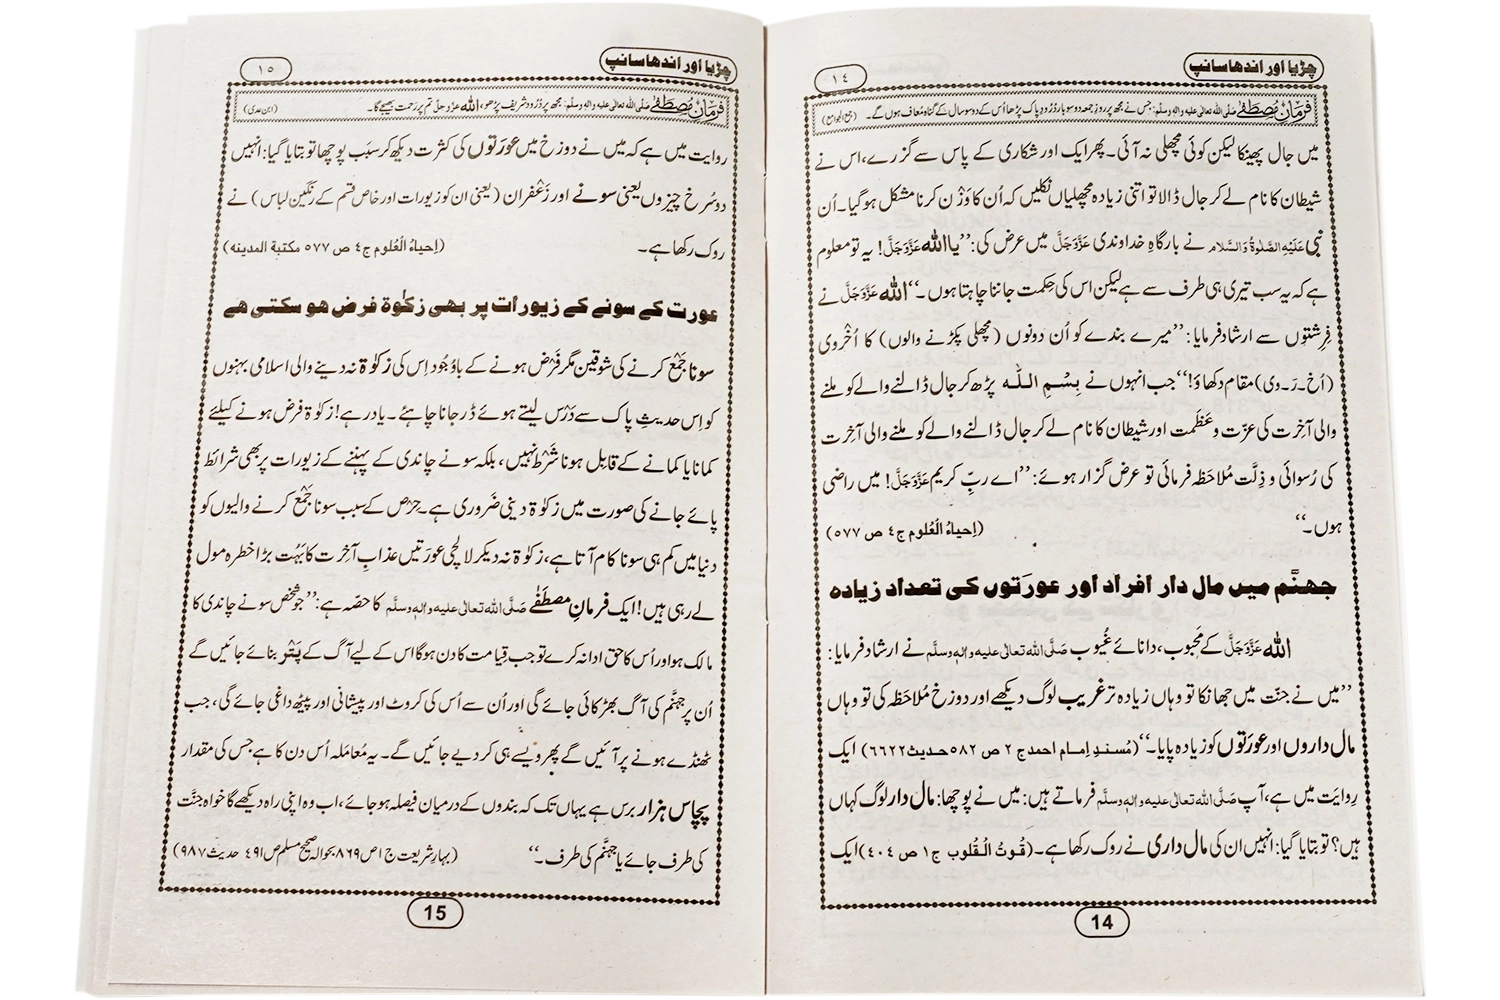 چڑیا اور اندھا سانپ
١٤
فرمانِ مُصطَفٰے صَلَّی اللہ تعالٰی علیہ والہٖ وسلَّم: جس نے مجھ پر روزِ جمعہ دو سو بار دُرُودِ پاک پڑھا اُس کے دو سو سال کے گناہ مُعاف ہوں گے۔ (جمع الجوامع)
میں جال پھینکا لیکن کوئی مچھلی نہ آئی۔ پھر ایک اور شکاری کے پاس سے گزرے، اس نے
شیطان کا نام لے کر جال ڈالا تو اتنی زیادہ مچھلیاں نکلیں کہ اُن کا وَزْن کرنا مشکل ہو گیا۔ اُن
نبی عَلَیْہِ الصَّلٰوۃُ وَالسَّلَام نے بارگاہِ خداوندی عَزَّوَجَلَّ میں عرض کی: ’’یا اللہ عَزَّوَجَلَّ! یہ تو معلوم
ہے کہ یہ سب تیری ہی طرف سے ہے لیکن اس کی حِکمت جاننا چاہتا ہوں۔‘‘ اللہ عَزَّوَجَلَّ نے
فِرِشتوں سے ارشاد فرمایا: ’’میرے بندے کو اُن دونوں (مچھلی پکڑنے والوں) کا اُخْرَوی
(اُخ۔رَ۔وی) مقام دکھاؤ!‘‘ جب انہوں نے بِسْمِ اللّٰہ پڑھ کر جال ڈالنے والے کو ملنے
والی آخرت کی عزّت و عَظَمت اور شیطان کا نام لے کر جال ڈالنے والے کو ملنے والی آخِرت
کی رُسوائی و ذِلّت مُلاحَظہ فرمائی تو عرض گزار ہوئے: ’’اے ربِّ کریم عَزَّوَجَلَّ! میں راضی
ہوں۔‘‘ (اِحیاءُ الْعُلوم ج٤ ص ٥٧٧)
جھنَّم میں مال دار افراد اور عورَتوں کی تعداد زیادہ
اللہ عَزَّوَجَلَّ کے مَحبوب، دانائے غُیوب صَلَّی اللہ تعالٰی علیہ والہٖ وسلَّم نے ارشاد فرمایا:
’’میں نے جنّت میں جھانکا تو وہاں زیادہ تر غریب لوگ دیکھے اور دوزخ مُلاحَظہ کی تو وہاں
مال داروں اور عورَتوں کو زیادہ پایا۔‘‘ (مُسندِ اِمام احمد ج ٢ ص ٥٨٢ حدیث ٦٦٢٢) ایک
رِوایَت میں ہے، آپ صَلَّی اللہ تعالٰی علیہ والہٖ وسلَّم فرماتے ہیں: میں نے پوچھا: مال دار لوگ کہاں
ہیں؟ تو بتایا گیا: انہیں ان کی مال داری نے روک رکھا ہے۔ (قُوتُ الْقُلوب ج ١ ص ٤٠٤) ایک
14
چڑیا اور اندھا سانپ
١٥
فرمانِ مُصطَفٰے صَلَّی اللہ تعالٰی علیہ والہٖ وسلَّم: مجھ پر دُرُود شریف پڑھو، اللہ عزوجل تم پر رَحمت بھیجے گا۔ (ابن عدی)
روایت میں ہے کہ میں نے دوزخ میں عورَتوں کی کثرت دیکھ کر سبَب پوچھا تو بتایا گیا: انہیں
دو سُرخ چیزوں یعنی سونے اور زَعْفران (یعنی ان کو زیورات اور خاص قسم کے رنگین لباس) نے
روک رکھا ہے۔ (اِحیاءُ الْعُلوم ج٤ ص ٥٧٧ مکتبۃ المدینہ)
عورت کے سونے کے زیورات پر بھی زکوٰۃ فرض ہو سکتی ہے
سونا جَمْع کرنے کی شوقین مگر فَرْض ہونے کے باوُجُود اِس کی زکوٰۃ نہ دینے والی اسلامی بہنوں
کو اِس حدیثِ پاک سے دَرْس لیتے ہوئے ڈر جانا چاہئے۔ یاد رہے! زکوٰۃ فرض ہونے کیلئے
کمانا یا کمانے کے قابِل ہونا شَرْط نہیں، بلکہ سونے چاندی کے پہننے کے زیورات پر بھی شرائط
پائے جانے کی صورت میں زکوٰۃ دینی ضَروری ہے۔ حِرْص کے سبب سونا جَمْع کرنے والیوں کو
دنیا میں کم ہی سونا کام آتا ہے، زکوٰۃ نہ دیکر لالچی عورَتیں عذابِ آخِرت کا بَہُت بڑا خطرہ مول
لے رہی ہیں! ایک فرمانِ مصطَفٰے صَلَّی اللہ تعالٰی علیہ والہٖ وسلَّم کا حصّہ ہے: ’’جو شخص سونے چاندی کا
مالک ہو اور اُس کا حق ادا نہ کرے تو جب قِیامت کا دن ہوگا اس کے لیے آگ کے پَتَّر بنائے جائیں گے
اُن پر جہنَّم کی آگ بھڑکائی جائے گی اور اُن سے اُس کی کروٹ اور پیشانی اور پیٹھ داغی جائے گی، جب
ٹھنڈے ہونے پر آئیں گے پھر ویسے ہی کر دیے جائیں گے۔ یہ مُعامَلہ اُس دن کا ہے جس کی مقدار
پچاس ہزار برس ہے یہاں تک کہ بندوں کے درمیان فیصلہ ہو جائے، اب وہ اپنی راہ دیکھے گا خواہ جنَّت
کی طرف جائے یا جہنَّم کی طرف۔‘‘ (بہارِ شریعت ج ١ ص ٨٦٩ بحوالہ صحیح مسلم ص ٤٩١ حدیث ٩٨٧)
15